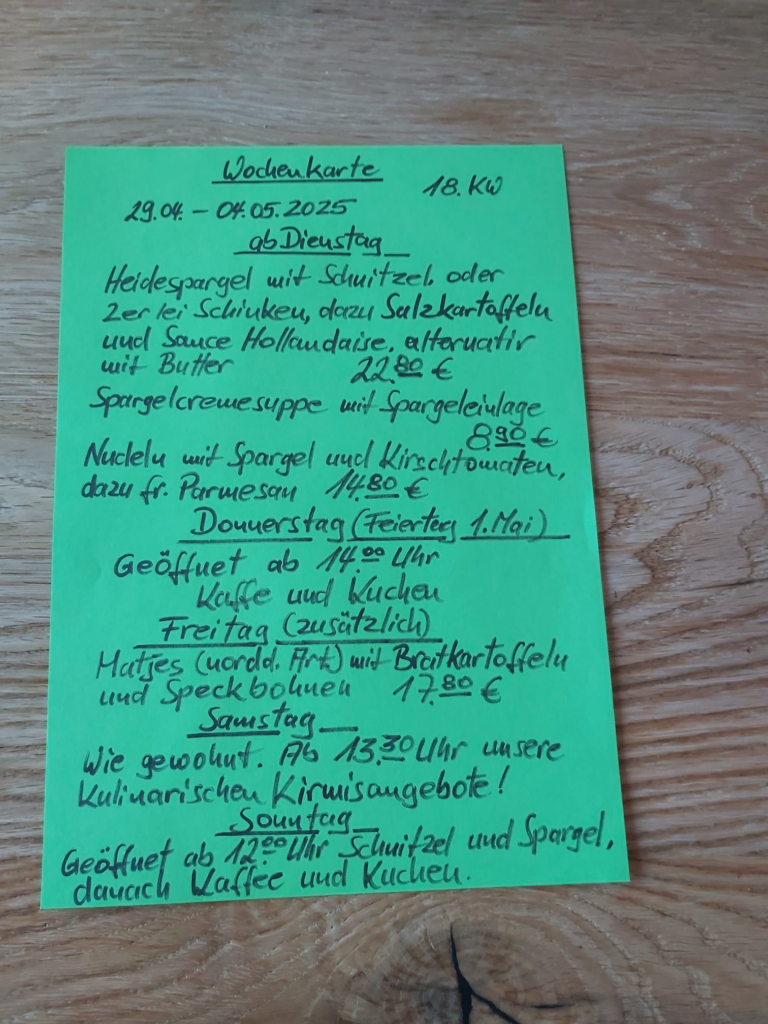 Wochenkarte
18. KW
29.04. – 04.05.2025
ab Dienstag
Heidespargel mit Schnitzel, oder
2erlei Schinken, dazu Salzkartoffeln
und Sauce Hollandaise, alternativ
mit Butter 22.80 €
Spargelcremesuppe mit Spargeleinlage
8.90 €
Nudeln mit Spargel und Kirschtomaten,
dazu fr. Parmesan 14.80 €
Donnerstag (Feiertag 1. Mai)
Geöffnet ab 14.00 Uhr
Kaffe und Kuchen
Freitag (zusätzlich)
Matjes (nordd. Art.) mit Bratkartoffeln
und Speckbohnen 17.80 €
Samstag
Wie gewohnt. Ab 13.30 Uhr unsere
Kulinarischen Kirmisangebote!
Sonntag
Geöffnet ab 12.00 Uhr Schnitzel und Spargel,
danach Kaffee und Kuchen.